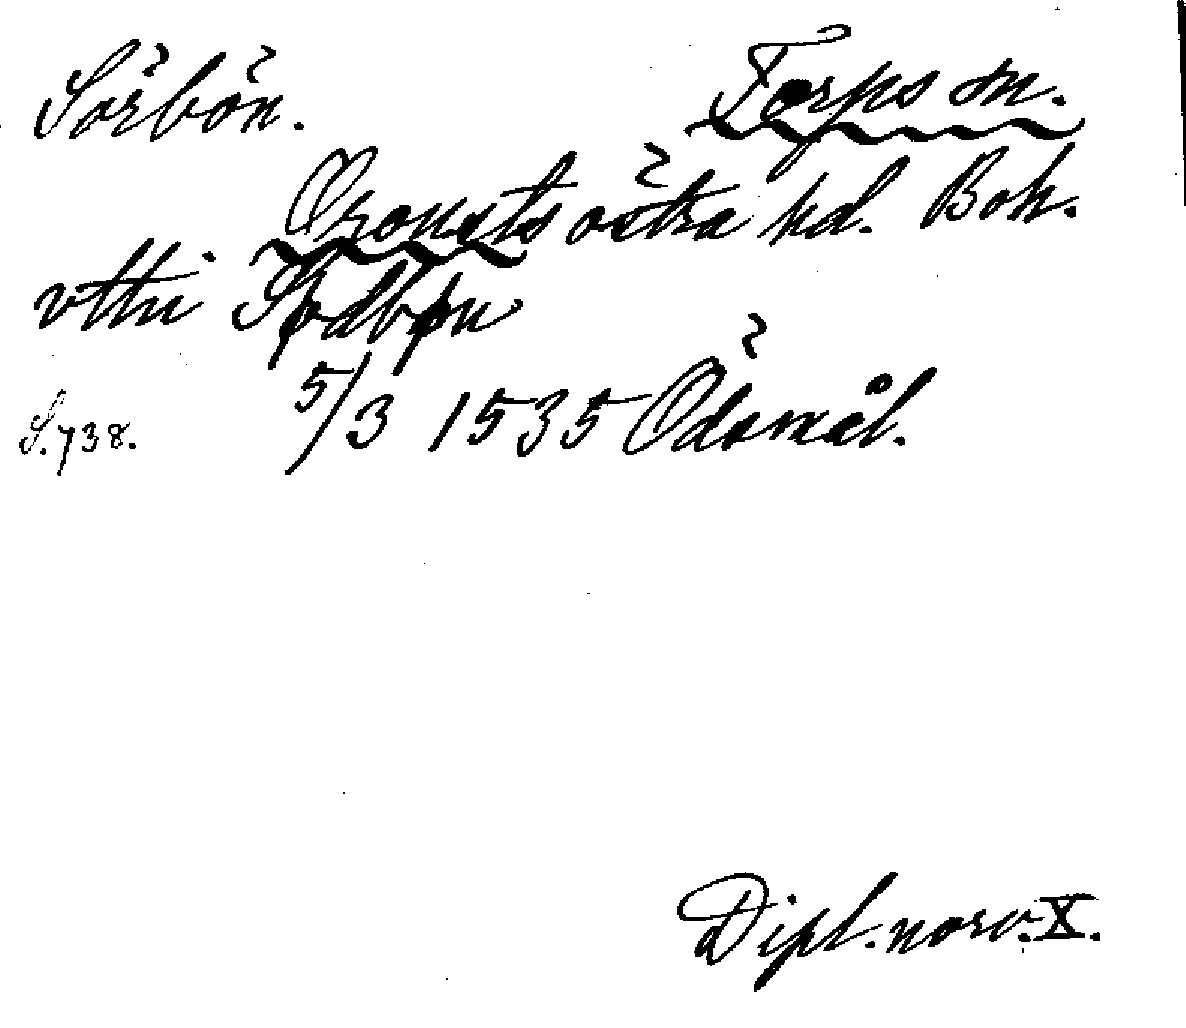 Sörbön. Torps sn.
Orousts östra hd. Boh.
vtthi Sødbøn
S. 738. 5/3 1535 Ödsmål.
Dipl. norv. X.